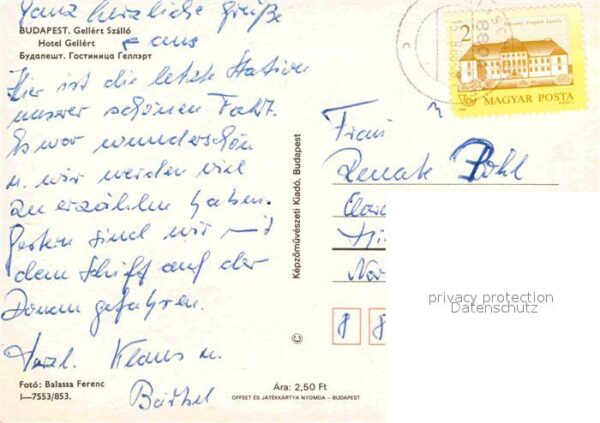 Ganz herzliche Grüße
BUDAPEST. Gellért Szálló
Hotel Gellért
aus
Будапешт. Гостиница Геллэрт
Hier ist die letzte Station
unserer schönen Fahrt.
Es war wunderschön
u. wir werden viel
zu erzählen haben.
Gestern sind wir mit
dem Schiff auf der
Donau gefahren.
Herzl. Klaus u.
Bärbel
Fotó: Balassa Ferenc
I—7553/853.
Képzőművészeti Kiadó, Budapest
©
Ára: 2,50 Ft
OFFSET ÉS JÁTÉKKÁRTYA NYOMDA – BUDAPEST
2
MAGYAR POSTA
Frau
Renate
8 8
privacy protection
Datenschutz